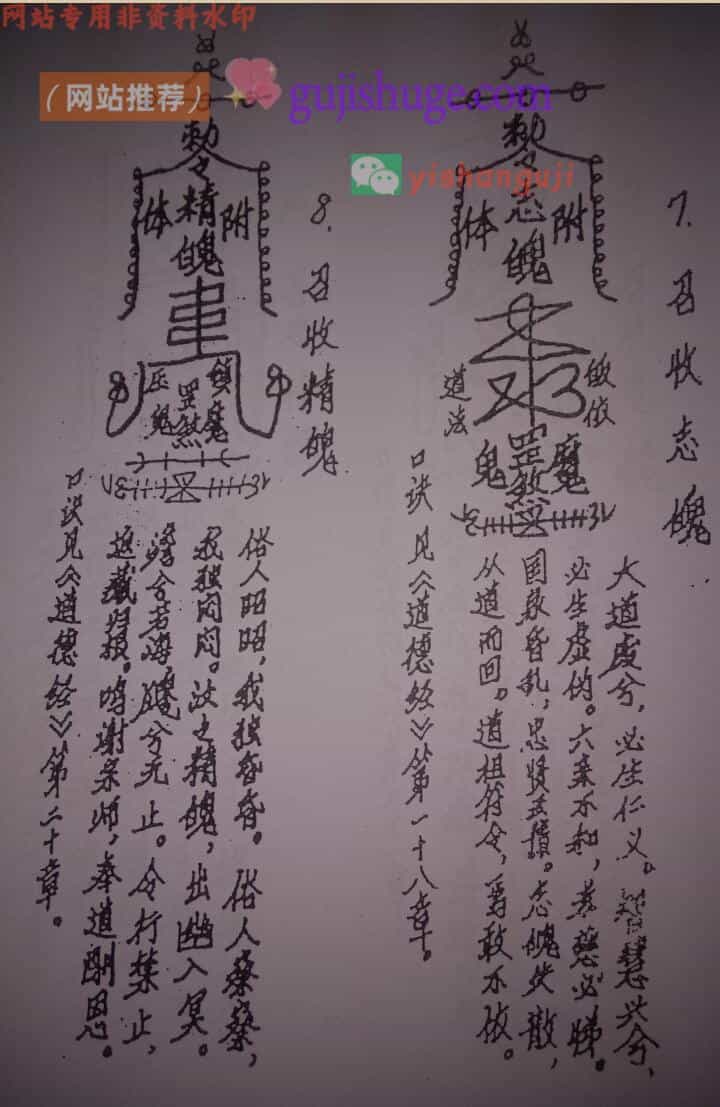 网站专用非资料水印
（网站推荐）
gujishuge.com
yishanguji
7.召收志魄
敕令志魄
附体
道法
敬依
鬼罡煞魔
大道废兮，必生仁义。智慧兴兮，
必生虚伪。六亲不和，孝慈必睇。
国家昏乱，忠贤去续。志魄失散，
从道而回。道祖符令，焉敢不依。
口诀见《道德经》第一十八章。
8.召收精魄
敕令精魄
附体
压鬼
罡煞
镇魔
俗人昭昭，我独昏昏。俗人察察，
我独闷闷。汝之精魄，出幽入冥。
澹兮若海，飂兮无止。令行禁止，
返藏归根。鸣谢宗师，奉道酬恩。
口诀见《道德经》第二十章。